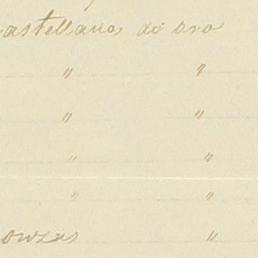 astellanos de oro
" "
" "
" "
" "
onzas "